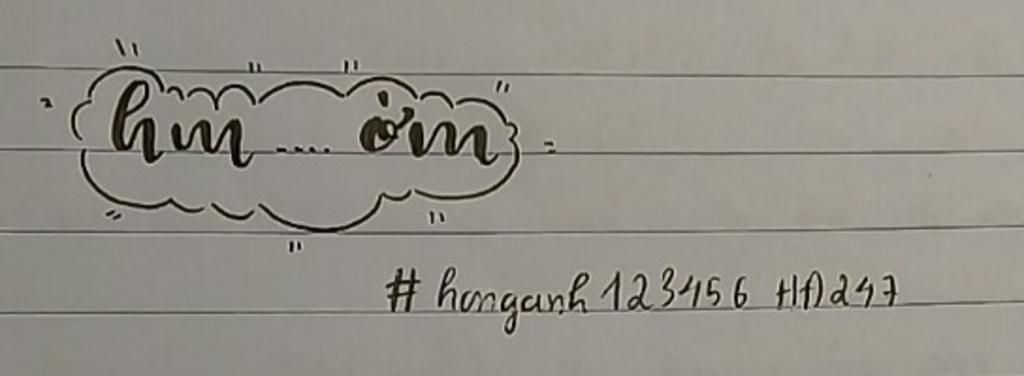 hm .... ờm
# honganh 123456 HA247